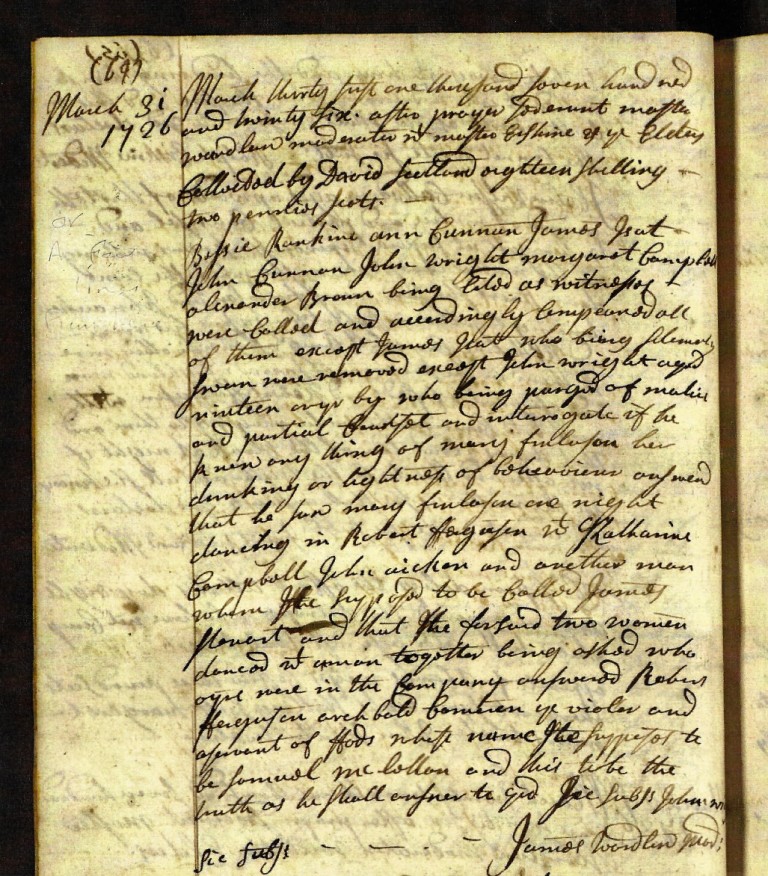 (69)
March 31
1726
March thirty first one thousand seven hundred
and twinty six. after prayer Sederunt master
wardlaw moderator wt master Erskine & ye Elders
Collected by David Scotland eighteen shilling
two pennies scots. —
Bessie Rankine ann Cunnan James Jsat
John Cunnan John wright margaret Campbell
alexander Broun being Cited as witnesses
were Called and accordingly Compeared all
of them except James Jsat who being solemnly
sworn were removed except John wright aged
ninteen or yr by who being purged of malice
and partial Counsel and interrogate if he
knew any thing of mary finlason her
drinking or lightness of behaviour answerd
that he saw mary finlason one night
dancing in Robert ffergusen wt Katharine
Campbell John aicken and another man
whom he supposed to be Called James
stenart and that the forsaid two women
danced wt a man together being asked who
oyrs were in the Company answered Robert
ffergusen archbald ye violer and
aservant of whose name he supposes to
be samuel mc lellan and this to be the
truth as he shall answer to god Sic Subss John
Sic Subss — — — James Wardlaw Mod: